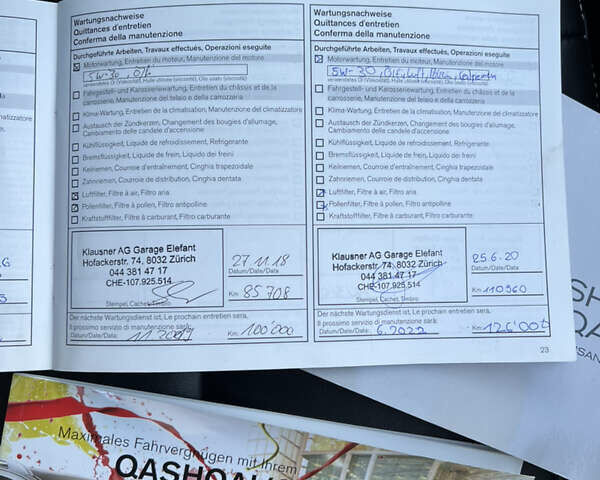 Wartungsnachweise
Quittances d'entretien
Conferma della manutenzione
Durchgeführte Arbeiten, Travaux effectués, Operazioni eseguite
Motorwartung, Entretien du moteur, Manutenzione del motore
5W-30, Öl
verwendetes Öl (Viskosität), Huile utilisée (viscosité), Olio usato (viscosità)
Fahrgestell- und Karosseriewartung, Entretien du châssis et de la
carrosserie, Manutenzione del telaio e della carrozzeria
Klima-Wartung, Entretien de la climatisation, Manutenzione del climatizzatore
Austausch der Zündkerzen, Changement des bougies d'allumage,
Cambiamento delle candele d'accensione
Kühlflüssigkeit, Liquide de refroidissement, Refrigerante
Bremsflüssigkeit, Liquide de frein, Liquido dei freni
Keilriemen, Courroie d'entraînement, Cinghia trapezoidale
Zahnriemen, Courroie de distribution, Cinghia dentata
Luftfilter, Filtre à air, Filtro aria
Pollenfilter, Filtre à pollen, Filtro antipolline
Kraftstofffilter, Filtre à carburant, Filtro carburante
Klausner AG Garage Elefant
Hofackerstr. 74, 8032 Zürich
044 381 47 17
CHE-107.925.514
Stempel, Cachet, Timbro
27 11.18
Datum/Date/Data
Km: 85'708
Der nächste Wartungsdienst ist, Le prochain entretien sera,
Il prossimo servizio di manutenzione sarà:
Datum/Date/Data: 11.2019 Km: 100'000
Wartungsnachweise
Quittances d'entretien
Conferma della manutenzione
Durchgeführte Arbeiten, Travaux effectués, Operazioni eseguite
Motorwartung, Entretien du moteur, Manutenzione del motore
5W-30, Öl,
verwendetes Öl (Viskosität), Huile utilisée (viscosité), Olio usato (viscosità)
Fahrgestell- und Karosseriewartung, Entretien du châssis et de la
carrosserie, Manutenzione del telaio e della carrozzeria
Klima-Wartung, Entretien de la climatisation, Manutenzione del climatizzatore
Austausch der Zündkerzen, Changement des bougies d'allumage,
Cambiamento delle candele d'accensione
Kühlflüssigkeit, Liquide de refroidissement, Refrigerante
Bremsflüssigkeit, Liquide de frein, Liquido dei freni
Keilriemen, Courroie d'entraînement, Cinghia trapezoidale
Zahnriemen, Courroie de distribution, Cinghia dentata
Luftfilter, Filtre à air, Filtro aria
Pollenfilter, Filtre à pollen, Filtro antipolline
Kraftstofffilter, Filtre à carburant, Filtro carburante
Klausner AG Garage Elefant
Hofackerstr. 74, 8032 Zürich
044 381 47 17
CHE-107.925.514
Stempel, Cachet, Timbro
25.6.20
Datum/Date/Data
Km: 110960
Der nächste Wartungsdienst ist, Le prochain entretien sera,
Il prossimo servizio di manutenzione sarà:
Datum/Date/Data: 6.2022 Km: 126'000
23
Maximales Fahrvergnügen mit Ihrem
QASHQA